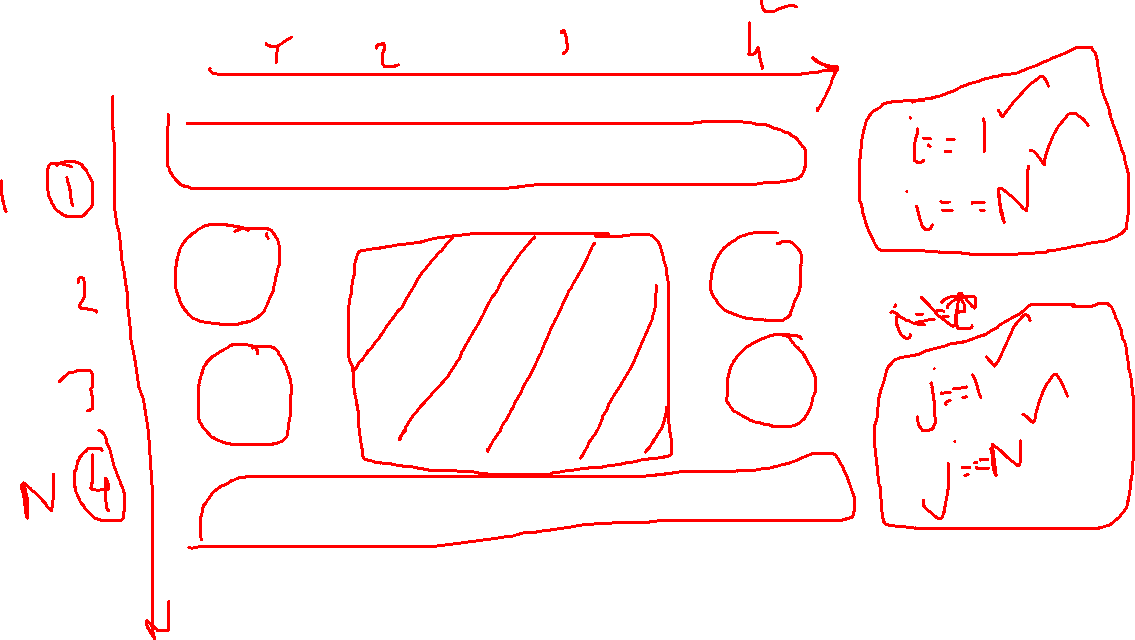 1 2 3 4
1 1
2
3
N 4
i==1
i==N
j==1
j==N